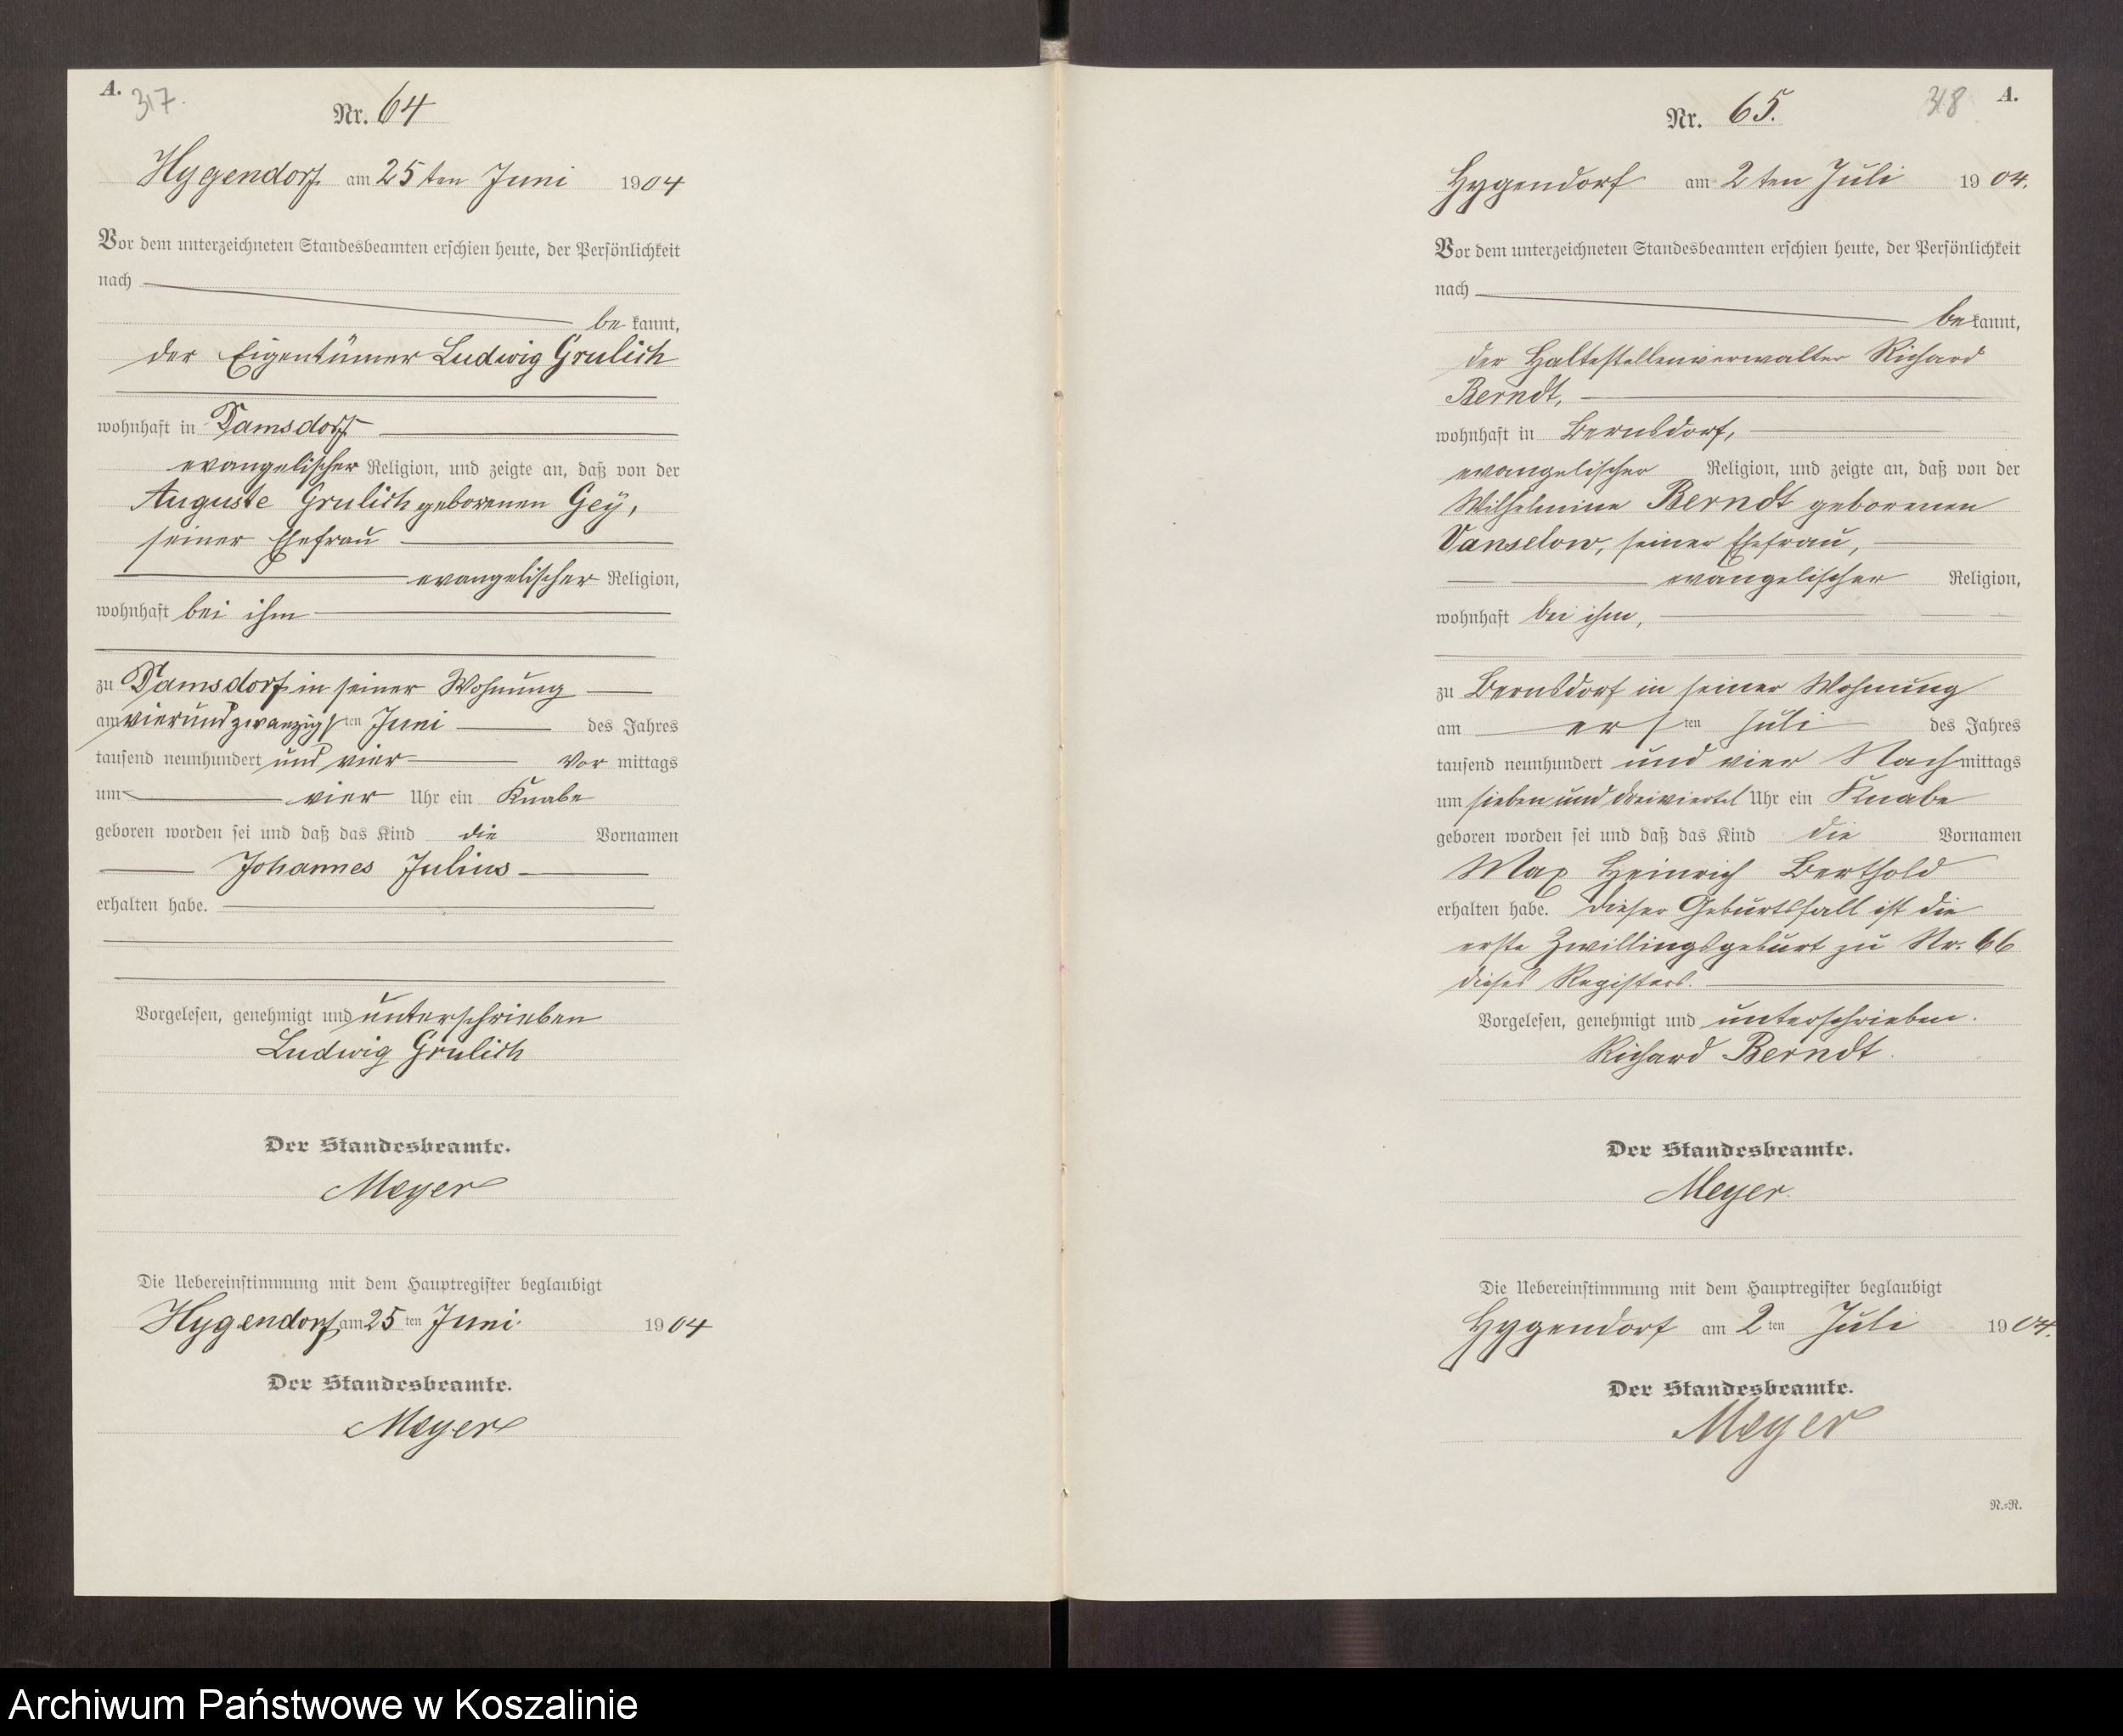 A.
317.
Nr. 64
Hygendorf am 25ten Juni 1904
Vor dem unterzeichneten Standesbeamten erschien heute, der Persönlichkeit
nach
be kannt,
der Eigentümer Ludwig Grulich
wohnhaft in Damsdorf
evangelischer Religion, und zeigte an, daß von der
Auguste Grulich geborenen Gey,
seiner Ehefrau
evangelischer Religion,
wohnhaft bei ihm
zu Damsdorf in seiner Wohnung
am vierundzwanzigsten Juni des Jahres
tausend neunhundert und vier Vor mittags
um vier Uhr ein Knabe
geboren worden sei und daß das Kind die Vornamen
Johannes Julius
erhalten habe.
Vorgelesen, genehmigt und unterschrieben
Ludwig Grulich
Der Standesbeamte.
Meyer
Die Uebereinstimmung mit dem Hauptregister beglaubigt
Hygendorf am 25ten Juni 1904
Der Standesbeamte.
Meyer
318
A.
Nr. 65.
Hygendorf am 2ten Juli 1904.
Vor dem unterzeichneten Standesbeamten erschien heute, der Persönlichkeit
nach
bekannt,
der Haltestellenverwalter Richard
Berndt,
wohnhaft in Bernsdorf,
evangelischer Religion, und zeigte an, daß von der
Wilhelmine Berndt geborenen
Vanselow, seiner Ehefrau,
evangelischer Religion,
wohnhaft bei ihm,
zu Bernsdorf in seiner Wohnung
am ersten Juli des Jahres
tausend neunhundert und vier Nachmittags
um sieben und dreiviertel Uhr ein Knabe
geboren worden sei und daß das Kind die Vornamen
Max Heinrich Berthold
erhalten habe. Dieser Geburtsfall ist die
erste Zwillingsgeburt zu Nr. 66
dieses Registers.
Vorgelesen, genehmigt und unterschrieben.
Richard Berndt.
Der Standesbeamte.
Meyer.
Die Uebereinstimmung mit dem Hauptregister beglaubigt
Hygendorf am 2ten Juli 1904.
Der Standesbeamte.
Meyer
N.=R.
Archiwum Państwowe w Koszalinie